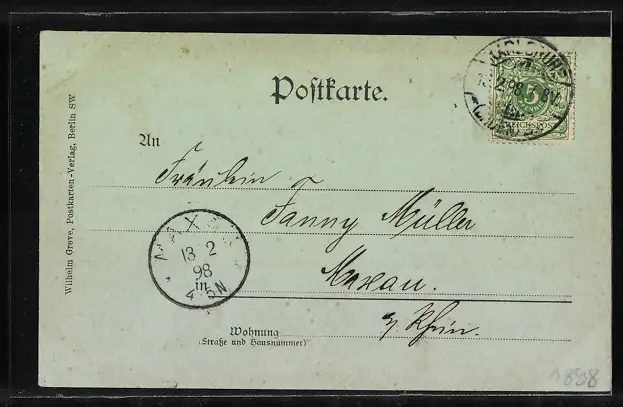 Postkarte.
KARLSRUHE
13.2.98
5
REICHSPOST
An
Fräulein
Fanny Müller
Maxau.
a/ Rhein.
MAXAU
13 2
98
4-5N
Wohnung
(Straße und Hausnummer)
Wilhelm Greve, Postkarten-Verlag, Berlin SW
1898